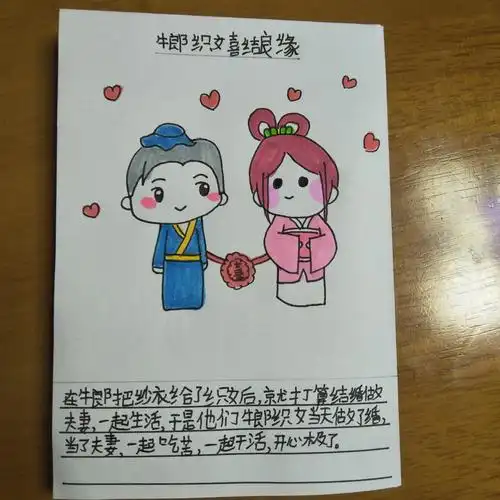 牛郎织女喜结良缘
喜
在牛郎把纱衣给了织女后,就打算结婚做
夫妻,一起生活,于是他们牛郎织女当天做了婚,
当了夫妻,一起吃苦,一起干活,开心极了。